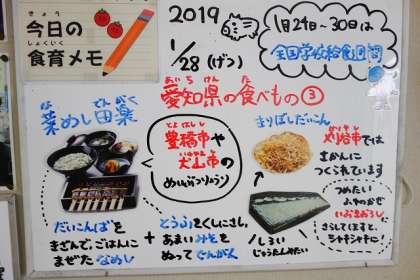 きょう
今日の
しょくいく
食育メモ
2019
1/28(げつ)
1月24日~30日は
全国学校給食週間
あいちけん た
愛知県の食べもの③
な でんがく
菜めし田楽
とよはしし
豊橋市や
いぬやまし
犬山市の
めいぶつりょうり
きりぼしだいこん
かりやし
刈谷市では
さかんに
つくられています
つめたい
ふゆのかぜ
いぶきおろし
さらしてほすと、
シャキシャキに!
しろい
じゅうたんみたい
だいこんばを
きざんで、ごはんに
まぜたなめし
+
とうふをくしにさし、
あまいみそを
ぬってでんがく